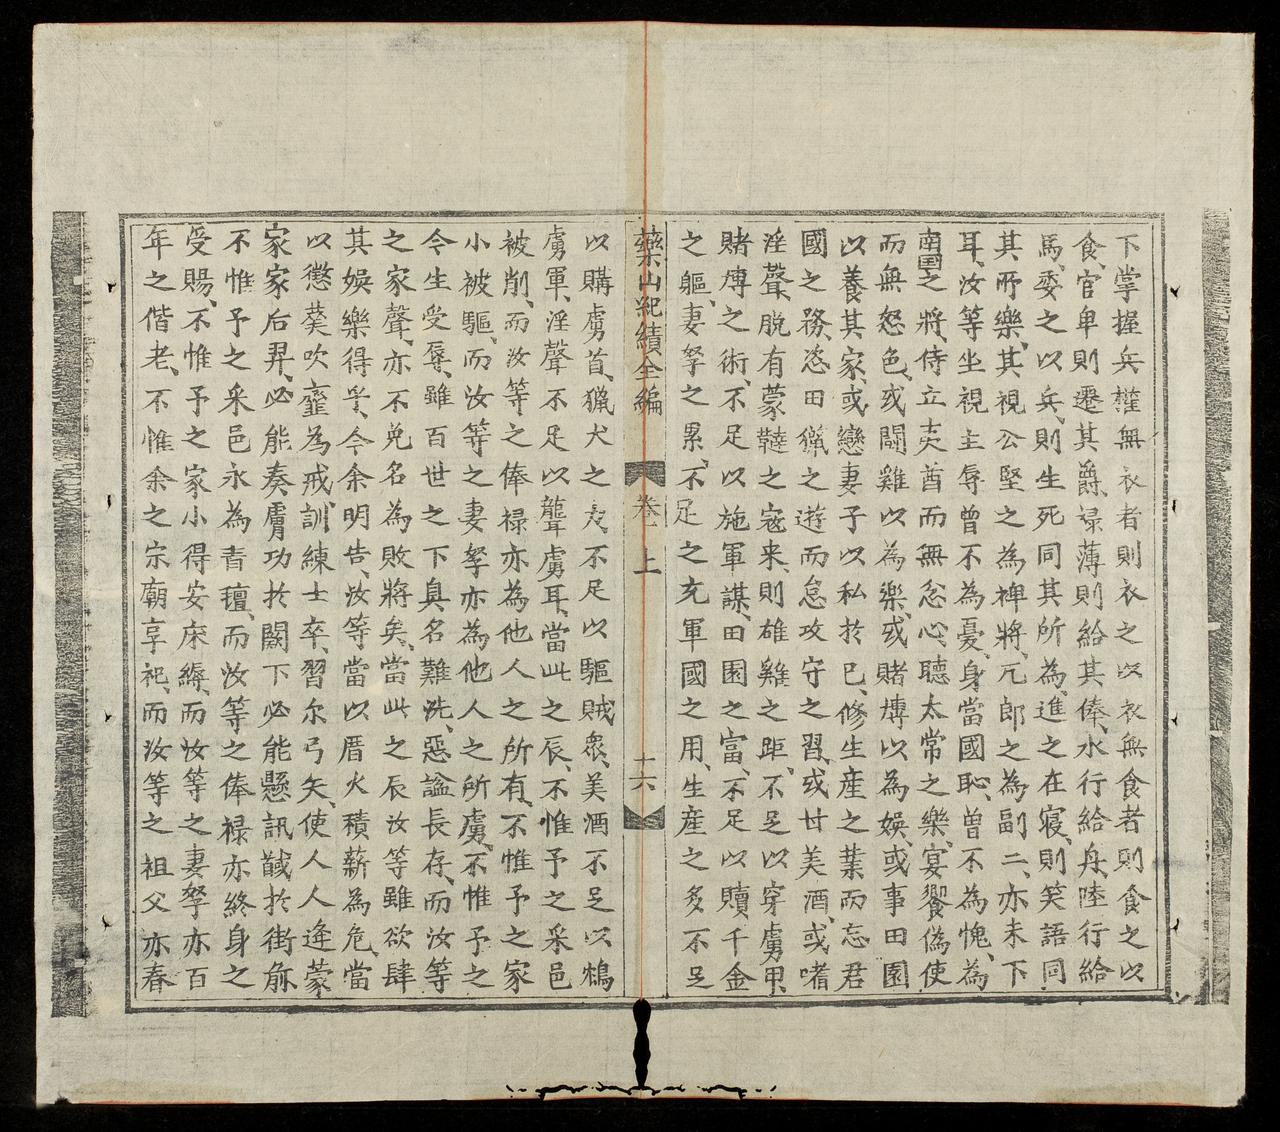 下掌握兵權無衣者則衣之以衣無食者則食之以
食、官卑則遷其爵、祿薄則給其俸、水行給舟、陸行給
馬、委之以兵、則生死同其所為、進之在寢、則笑語同
其所樂、其視公堅之為裨將、兀郎之為副二、亦未下
耳、汝等坐視主辱曾不為憂、身當國恥、曾不為愧、為
南国之將、侍立夷酋而無忿心、聽太常之樂、宴饗偽使
而無怒色、或鬪雞以為樂、或賭博以為娛、或事田園
以養其家、或戀妻子以私於已、修生産之業而忘君
國之務、恣田獵之遊而怠攻守之習、或甘美酒、或嗜
淫聲、脱有蒙韃之寇来、則雄雞之距、不足以穿虜甲、
賭博之術、不足以施軍謀、田園之富、不足以贖千金
之軀、妻孥之累、不足之充軍國之用、生産之多不足
藥山紀績全編 卷 上 十六
以購虜首、獵犬之力不足以驅賊衆、美酒不足以鴆
虜軍、淫聲不足以聾虜耳、當此之辰、不惟予之采邑
被削、而汝等之俸禄亦為他人之所有、不惟予之家
小被驅、而汝等之妻孥亦為他人之所虜、不惟予之
今生受辱、雖百世之下臭名難洗、惡謚長存、而汝等
之家聲、亦不免名為敗將矣、當此之辰汝等雖欲肆
其娛樂得乎、今余明告、汝等當以厝火積薪為危、當
以懲羹吹虀為戒、訓練士卒、習尔弓矢、使人人逄蒙
家家后羿、必能奏膚功於闕下必能懸訊馘於街觮
不惟予之采邑永為青氊、而汝等之俸禄亦終身之
受賜、不惟予之家小得安床縟、而汝等之妻孥亦百
年之偕老、不惟余之宗廟享祀、而汝等之祖父亦春